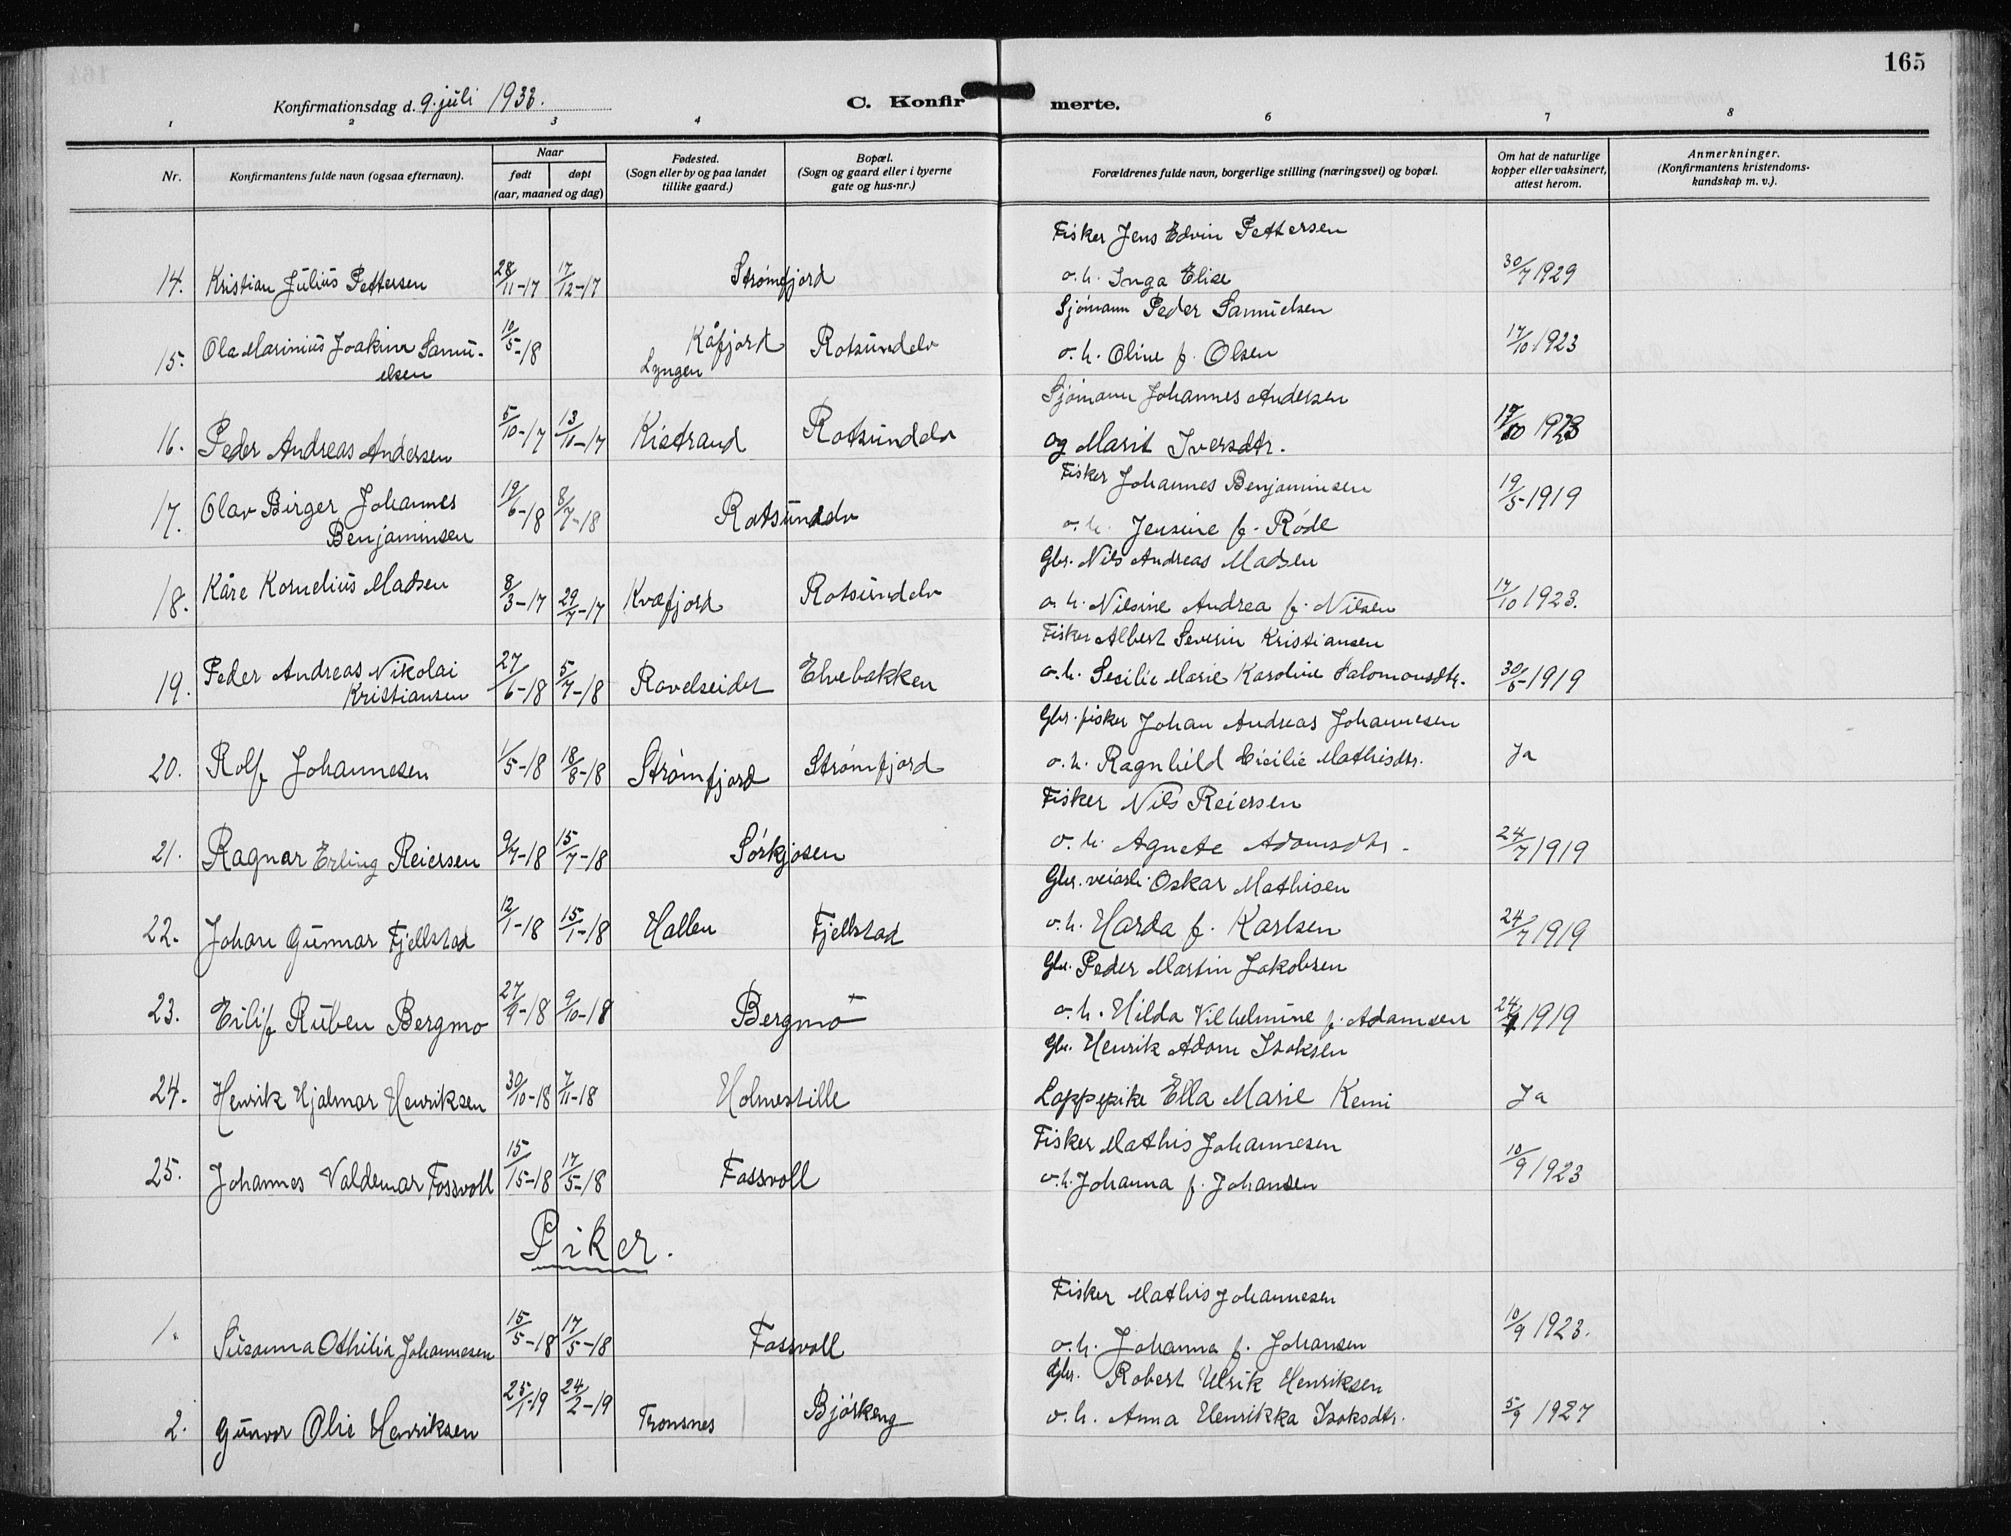 165
Konfirmationsdag d. 9. juli 1933.
C. Konfirmerte.
1 2 3 4 6 7 8
Nr.
Konfirmantens fulde navn (ogsaa efternavn).
Naar
født døpt
(aar, maaned og dag)
Fødested.
(Sogn eller by og paa landet
tillike gaard.)
Bopæl.
(Sogn og gaard eller i byerne
gate og hus-nr.)
Forældrenes fulde navn, borgerlige stilling (næringsvei) og bopæl.
Om hat de naturlige
kopper eller vaksinert,
attest herom.
Anmerkninger.
(Konfirmantens kristendoms-
kundskap m. v.).
Fisker Jens Edvin Pettersen
14. Kristian Julius Pettersen 28/11-17 17/12-17 Strømfjord o. h. Inga Elise 30/7 1929
Sjømann Peder Samuelsen
15. Ola Marinius Joakim Samu-
elsen 10/5-18 Kåfjord
Lyngen Rotsundelv o. h. Oline f. Olsen 17/10 1923
Sjømann Johannes Andersen
16. Peder Andreas Andersen 5/10-17 13/10-17 Kistrand Rotsundelv og Marit Iversdtr. 17/10 1923
Fisker Johannes Benjaminsen
17. Olav Birger Johannes
Benjaminsen 19/6-18 8/7-18 Rotsundelv o. h. Jensine f. Røde 19/5-1919
Gbr. Nils Andreas Madsen
18. Kåre Kornelius Madsen 8/3-17 29/7-17 Kvæfjord Rotsundelv o. h. Nilsine Andrea f. Nilsen 17/10 1923.
Fisker Albert Severin Kristiansen
19. Peder Andreas Nikolai
Kristiansen 27/6-18 5/7-18 Ravelseidet Elvebakken o. h. Secilie Marie Karoline Salomonsdtr. 30/5-1919
Gbr. fisker Johan Andreas Johannesen
20. Rolf Johannesen 1/5-18 18/8-18 Strømfjord Strømfjord o. h. Ragnhild Cicilie Mathisdtr. Ja
Fisker Nils Reiersen
21. Ragnar Erling Reiersen 9/7-18 15/7-18 Sørkjosen o. h. Agnete Adamsdtr. 24/7 1919
Gbr. veiarb. Oskar Mathisen
22. Johan Gunnar Fjellstad 12/1-18 15/1-18 Hallen Fjellstad o. h. Harda f. Karlsen 24/7 1919
Gbr. Peder Martin Jakobsen
23. Eilif Ruben Bergmo 27/9-18 9/10-18 Bergmo o. h. Hilda Vilhelmine f. Adamsen 24/7 1919
Gbr. Henrik Adam Isaksen
24. Henrik Hjalmar Henriksen 30/10-18 7/11-18 Holmestille Lappepike Ella Marie Kemi Ja
Fisker Mathis Johannesen
25. Johannes Valdemar Fossvoll 15/15-18 17/5-18 Fossvoll o. h. Johanna f. Johansen 10/9 1923
Piker.
Fisker Mathis Johannesen
1. Susanna Othilia Johannesen 15/5-18 17/5-18 Fossvoll o. h. Johanna f. Johansen 10/9 1923.
Gbr. Robert Ulrik Henriksen
2. Gunvor Olie Henriksen 25/1-19 24/2-19 Tronsnes Bjørkeng o. h. Anna Henrikka Isaksdtr. 5/9 1927